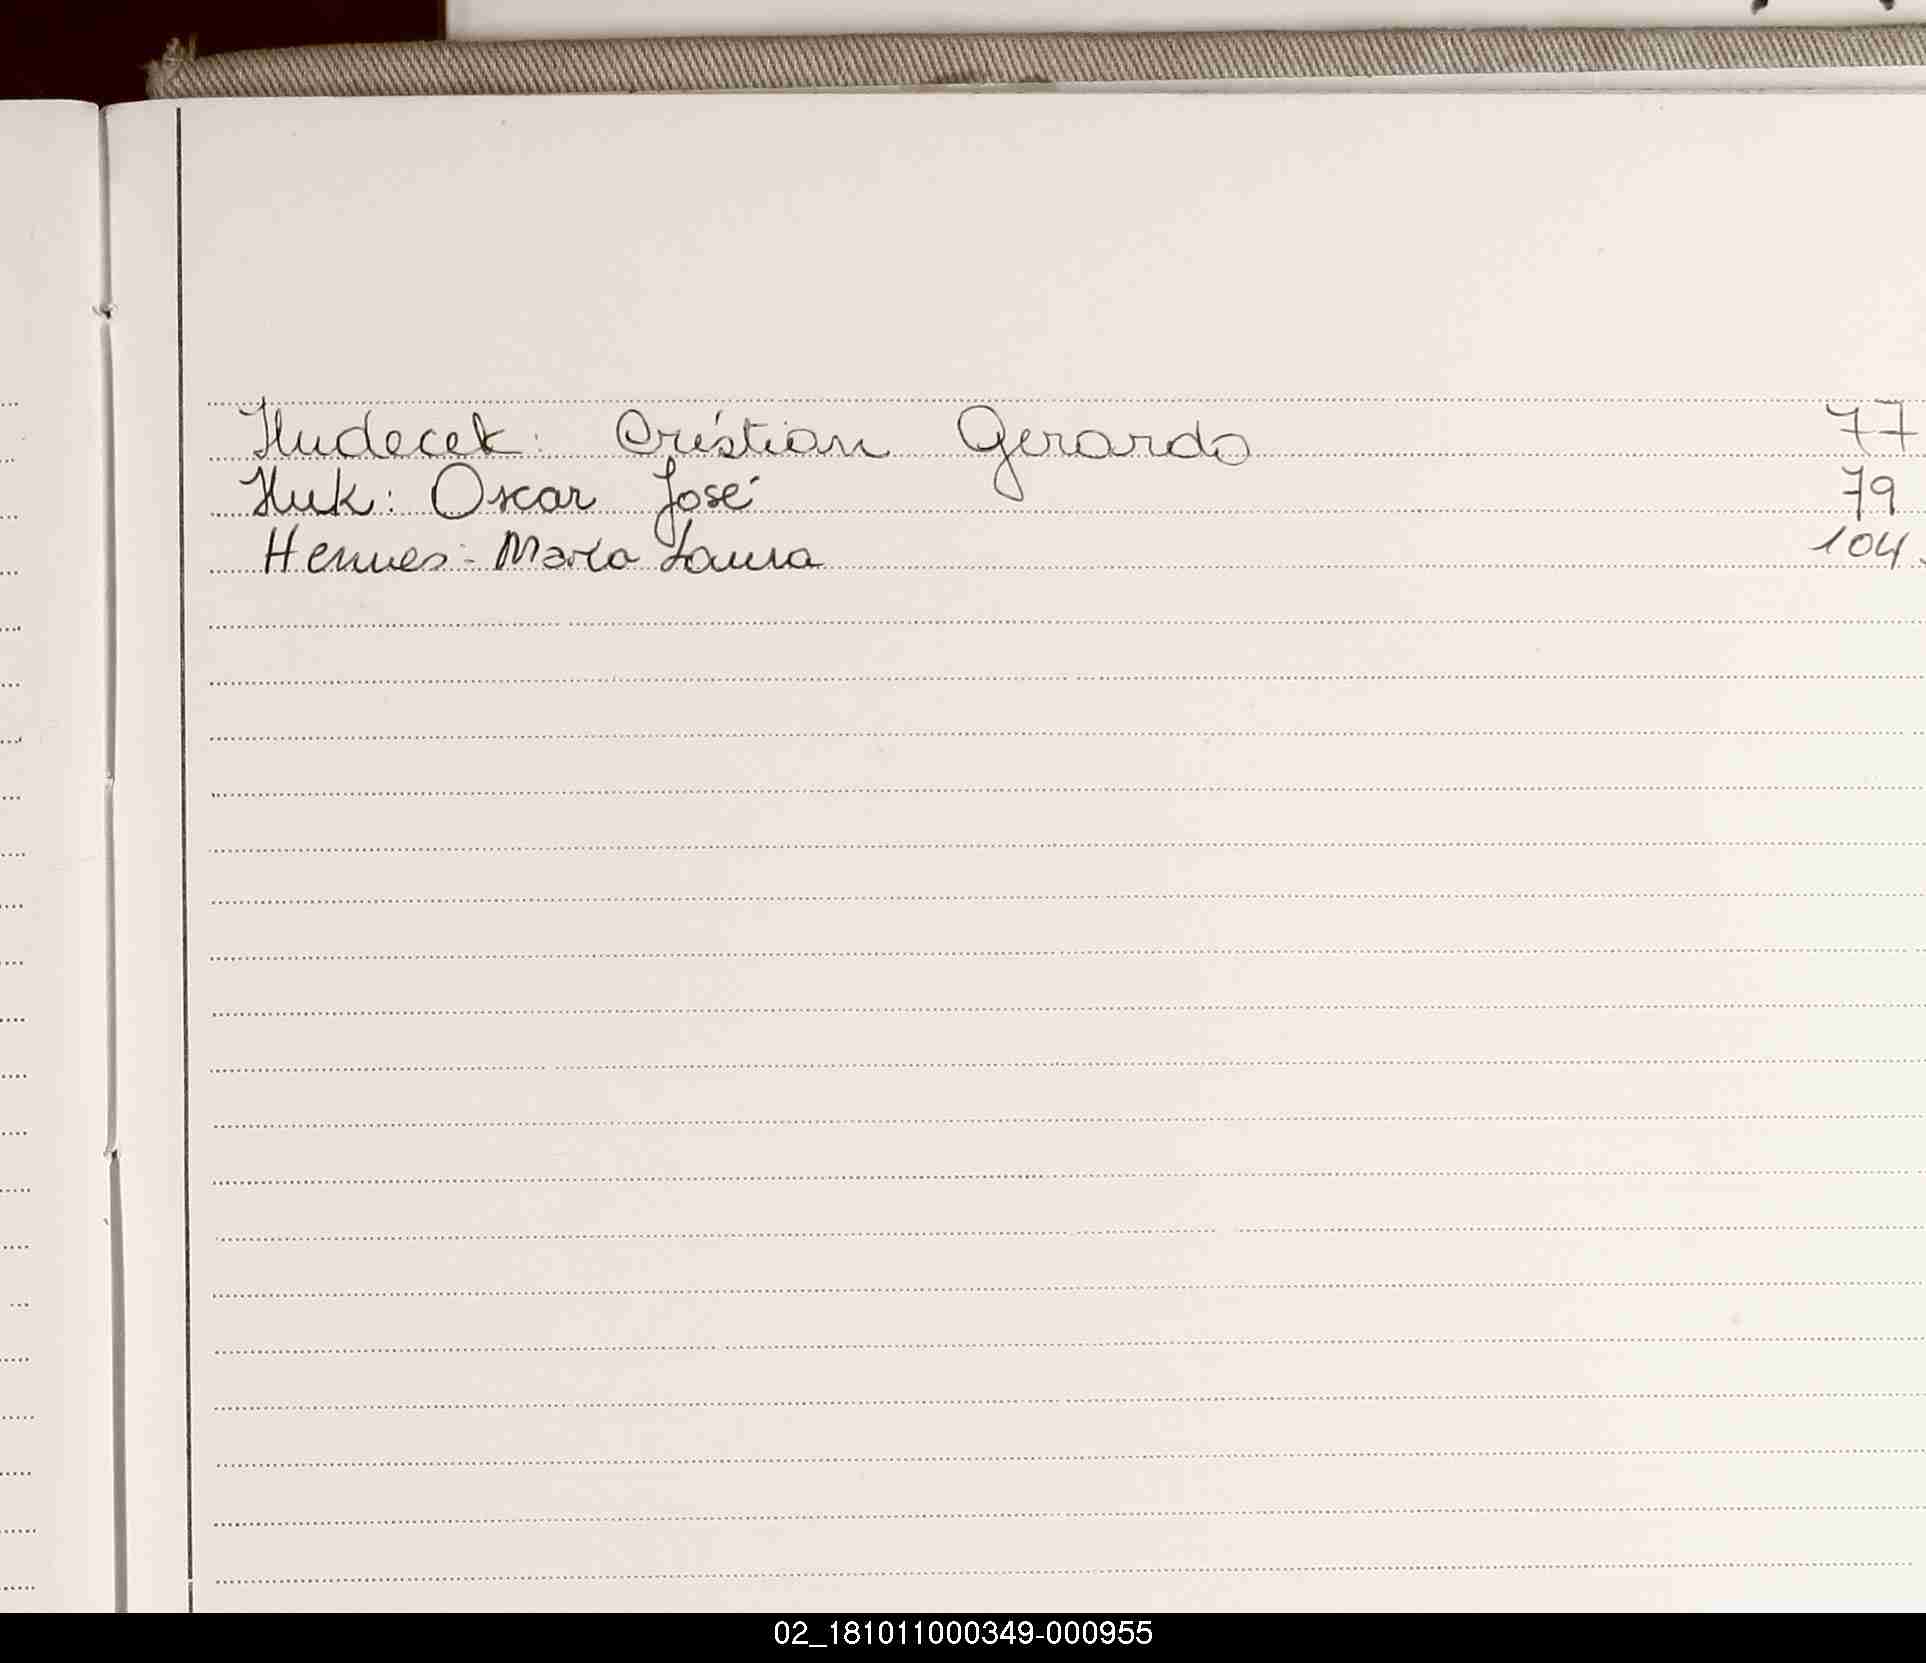 Hudecek: Cristian Gerardo 77
Huk: Oscar José 79
Hennes: María Laura 104.
02_181011000349-000955